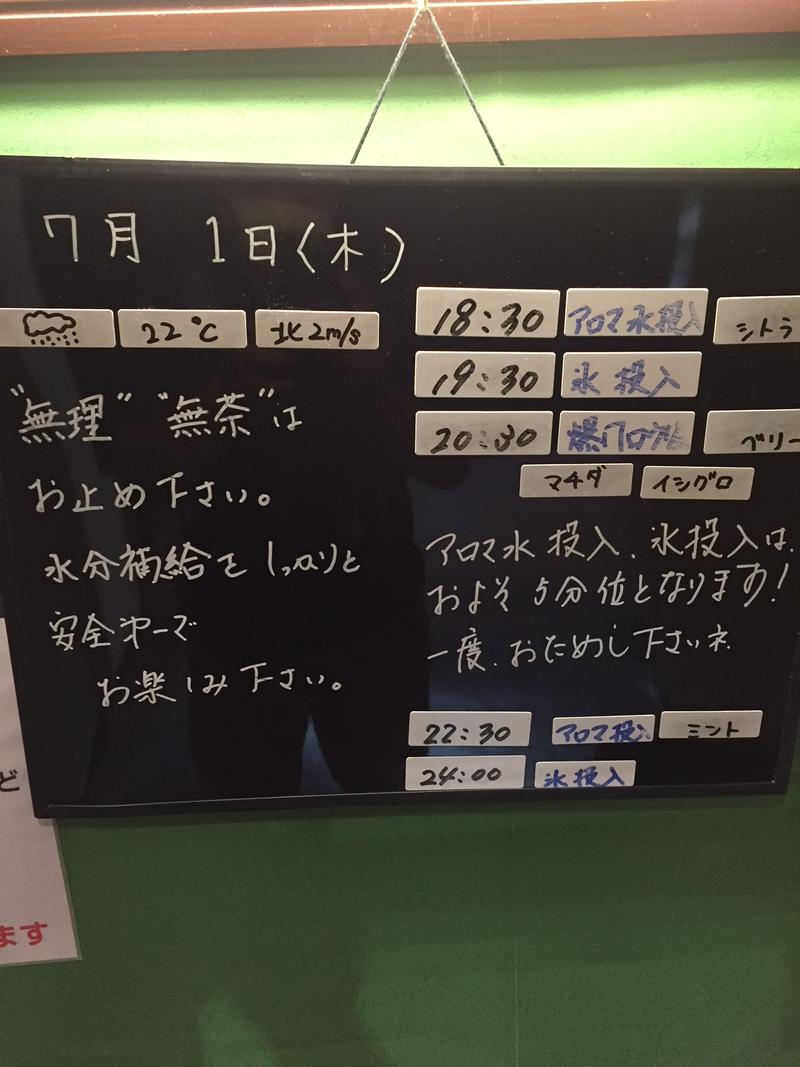 7月 1日(木)
22℃ 北2m/s
"無理" "無茶"は
お止め下さい。
水分補給をしっかりと
安全第一で
お楽しみ下さい。
18:30 アロマ水投入 シトラ
19:30 氷投入
20:30 ベリー
マチダ イシグロ
アロマ水投入、氷投入は、
およそ5分位となります!
一度、おためし下さいネ.
22:30 アロマ投入 ミント
24:00 氷投入
ど
ます